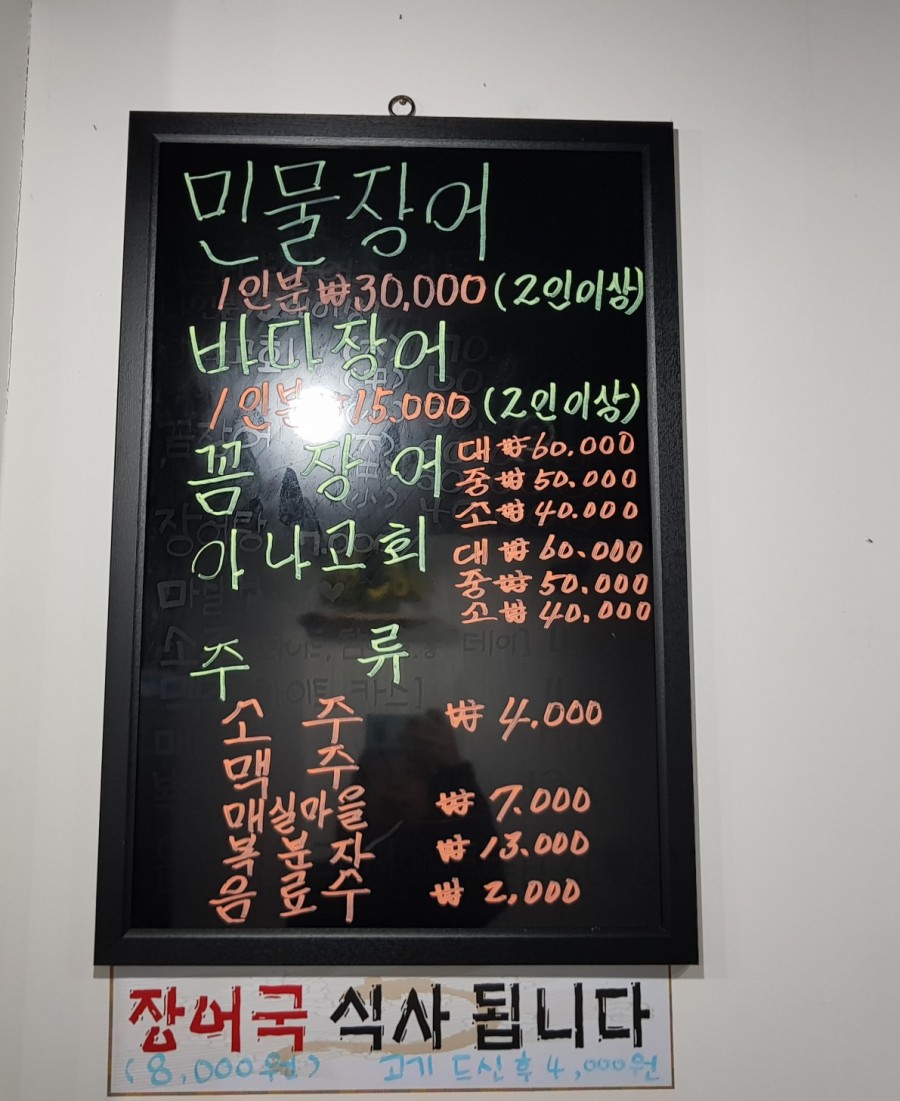 민물장어
1인분 ₩30,000 (2인이상)
바다장어
1인분 15.000 (2인이상)
꼼장어 대 ₩60.000
중 ₩50.000
소 ₩40.000
아나고회 대 ₩60.000
중 ₩50.000
소 ₩40.000
주류
소주 ₩4.000
맥주
매실마을 ₩7.000
복분자 ₩13.000
음료수 ₩2,000
장어국 식사 됩니다
(8,000원) 고기 드신후 4,000원